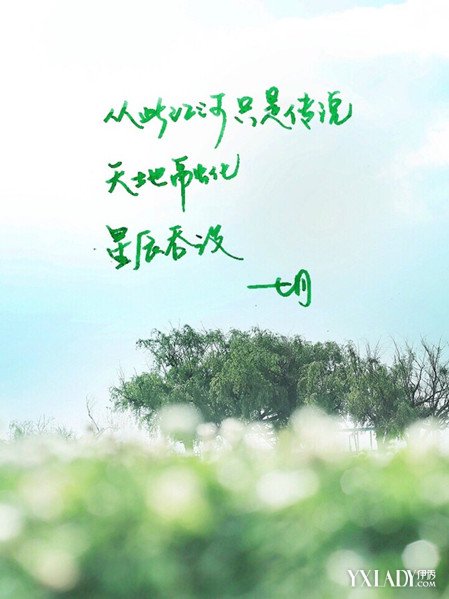 从此江河只是传说
天地融化
星辰吞没
—七月
YXLADY伊秀
.com